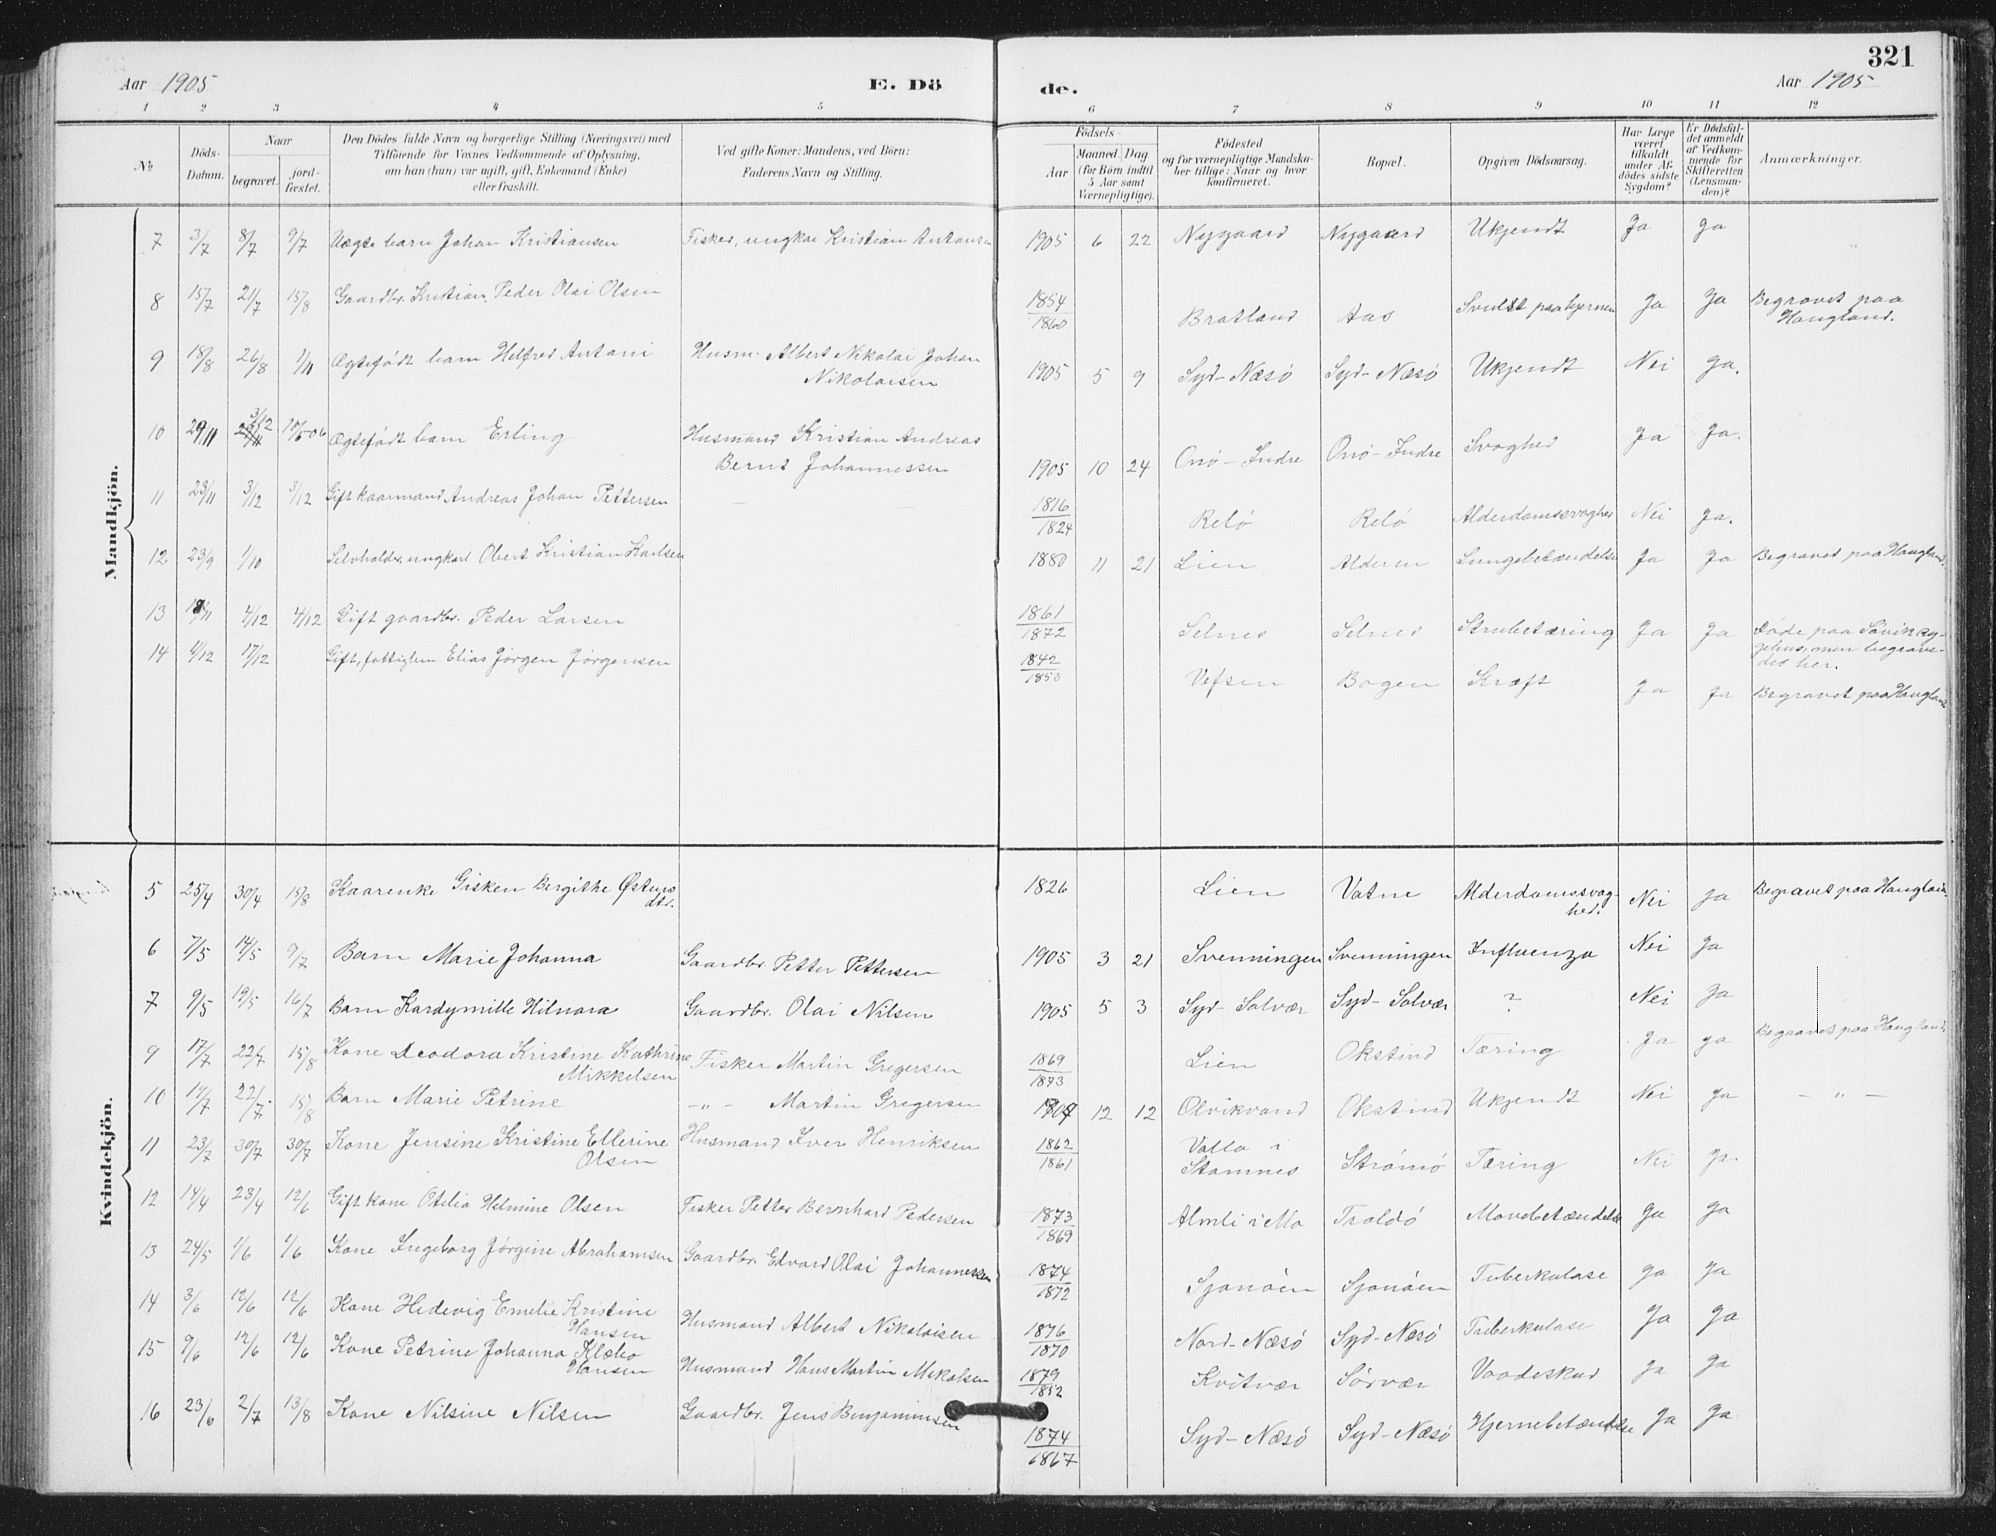 321
Aar 1905 E. Dö de. Aar 1905
1 2 3 4 5 6 7 8 9 10 11 12
№
Döds-Datum.
Naar
begravet.
jord-fæstet.
Den Dödes fulde Navn og borgerlige Stilling (Næringsvei) med
Tilföiende for Voxnes Vedkommende af Oplysning,
om han (hun) var ugift, gift, Enkemand (Enke)
eller fraskilt.
Ved gifte Koner: Mandens, ved Börn:
Faderens Navn og Stilling.
Födsels-
Aar
Maaned Dag
(for Börn indtil
5 Aar samt
Værnepligtige).
Födested
og for værnepligtige Mandska-
ber tillige: Naar og hvor
konfirmeret.
Bopæl.
Opgiven Dödsaarsag.
Har Læge
været
tilkaldt
under Af-
dödes sidste
Sygdom?
Er Dödsfal-
det anmeldt
af Vedkom-
mende for
Skifteretten
(Lensman-
den)?
Anmærkninger.
Mandkjön.
7 3/7 8/7 9/7 Uægte barn Johan Kristiansen Fisker, ungkar Kristian Antonsen 1905 6 22 Nygaard Nygaard Ukjendt Ja Ja
8 15/7 21/7 15/8 Gaardbr. Kristian Peder Olai Olsen 1854/1860 Bratland Aas Svulst paa hjernen Ja Ja Begravet paa
Haugland.
9 18/8 26/8 1/11 Ægtefødt barn Hilfred Antoni Husm. Albert Nikolai Johan
Nikolaisen 1905 5 9 Syd-Næsö Syd-Næsö Ukjendt Nei Ja.
10 29/11 3/12 Ægtefødt barn Erling Husmand Kristian Andreas
Bernt Johannessen 1905 10 24 Onö-Indre Onö-Indre Svaghed Ja Ja.
11 23/11 3/12 3/12 Gift kaarmand Andreas Johan Pettersen — 1816/1824 Relö Relö Alderdomssvaghed Nei Ja.
12 23/9 1/10 Selvholder, ungkarl Obert Kristian Karlsen 1880 11 21 Lien Alderen Lungebetændelse Ja Ja Begravet paa Haugland.
13 18/11 4/12 4/12 Gift gaardbr. Peder Larsen 1861/1872 Selnes Selnes Strubetæring Ja Ja Døde paa Søvik sy-
gehus, men begrave-
des her.
14 9/12 17/12 Gift, fattiglem Elias Jørgen Jørgensen 1842/1853 Vefsen Bogen Kræft Ja Ja Begravet paa Haugland
Kvindekjön.
5 25/4 30/4 15/8 Kaarenke Gisken Bergithe Østens
dtr. 1826 Lien Vatne Alderdomssvag-
hed. Nei Ja Begravet paa Haugland.
6 7/5 14/5 9/7 Barn Marie Johanna Gaardbr. Petter Pettersen 1905 3 21 Svenningen Svenningen Influenza Nei Ja
7 9/5 19/5 16/7 Barn Kardymille Hilnora Gaardbr. Olai Nilsen 1905 5 3 Syd-Solvær Syd-Solvær ? Nei Ja
9 17/7 22/7 15/8 Kone Deodora Kristine Kathrine
Mikkelsen Fisker Martin Gregersen 1869/1873 Lien Okstind Tæring Ja Ja Begravet paa Haugland.
10 19/7 22/7 15/8 Barn Marie Petrine —„— Martin Gregersen 1904 12 12 Olvikvand Okstind Ukjendt Nei Ja —„—
11 23/7 30/7 30/7 Kone Jensine Kristine Ellerine
Olsen Husmand Iver Henriksen 1862/1861 Valla i
Stamnes Strømö Tæring Nei Ja.
12 14/4 23/4 12/6 Gift kone Otilia Helmine Olsen Fisker Petter Bernhard Pedersen 1873/1869 Almli i Mo Troldö Mavebetændelse Ja Ja
13 24/5 1/6 1/6 Kone Ingeborg Jörgine Abrahamsen Gaardbr. Edvard Olai Johannessen 1874/1872 Sjonöen Sjonöen Tuberkulose Ja Ja
14 3/6 12/6 12/6 Kone Hedevig Emelie Kristine
Hansen Husmand Albert Nikolaisen 1876/1870 Nord-Næsö Syd-Næsö Tuberkulose Ja Ja
15 9/6 12/6 12/6 Kone Petrine Johanna Klæbo
Hansen Husmand Hans Martin Mikalsen 1879/1852 Kvitvær Sörvær Vaadeskud Ja Ja
16 23/6 2/7 13/8 Kone Nilsine Nilsen Gaardbr. Jens Benjaminsen 1874/1867 Syd-Næsö Syd-Næsö Hjernebetændelse Ja Ja